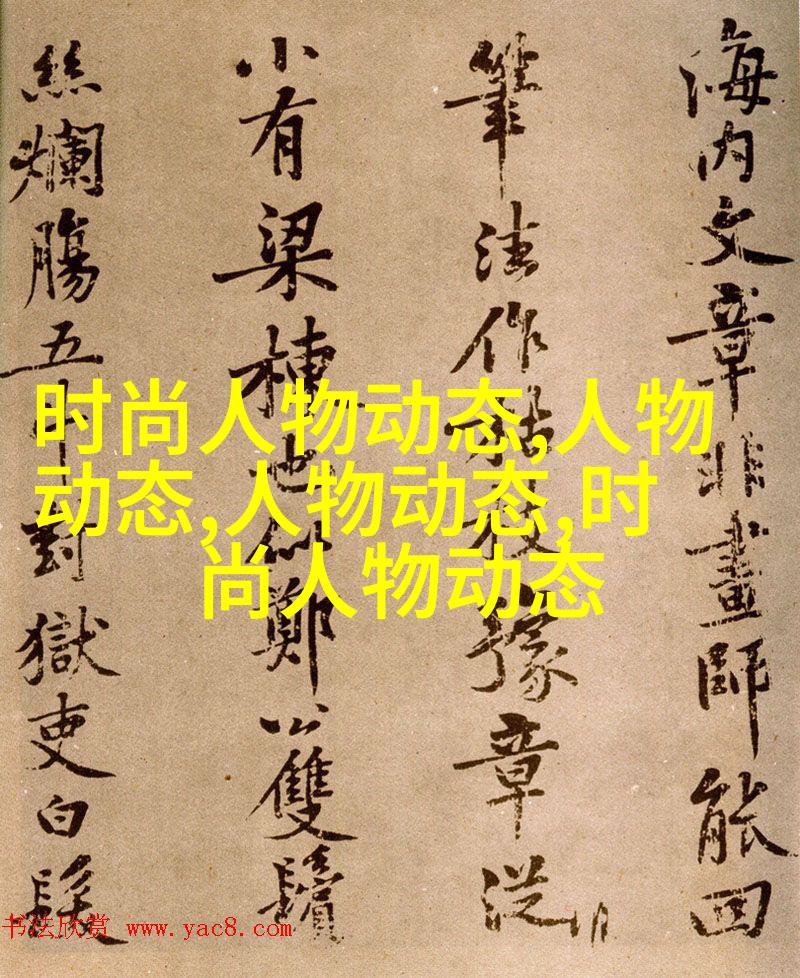 海内文章非畫師能回
筆法作枯枝豫章從
小有梁棟也似鄭公雙鬢
絲爛腸五斗對獄吏白髮
时尚人物动态,人物
动态,人物动态,时
尚人物动态
书法欣赏 www.yac8.com